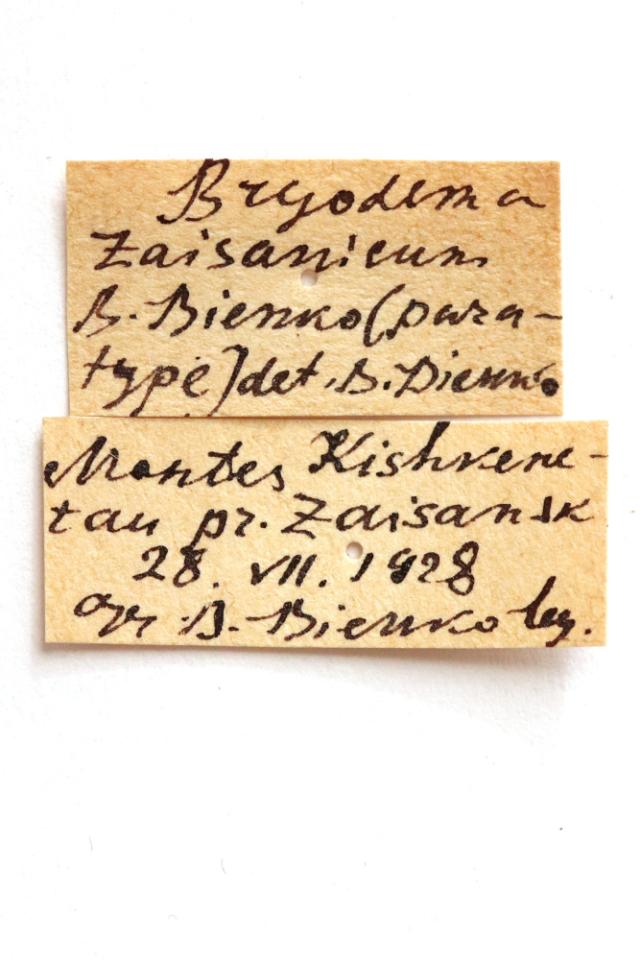 Bryodema
Zaisanicum
B. Bienko (para-
type) det. B. Bienko
Montes Kishkene-
tau pr. Zaisansk
28. VII. 1928
B. Bienko leg.